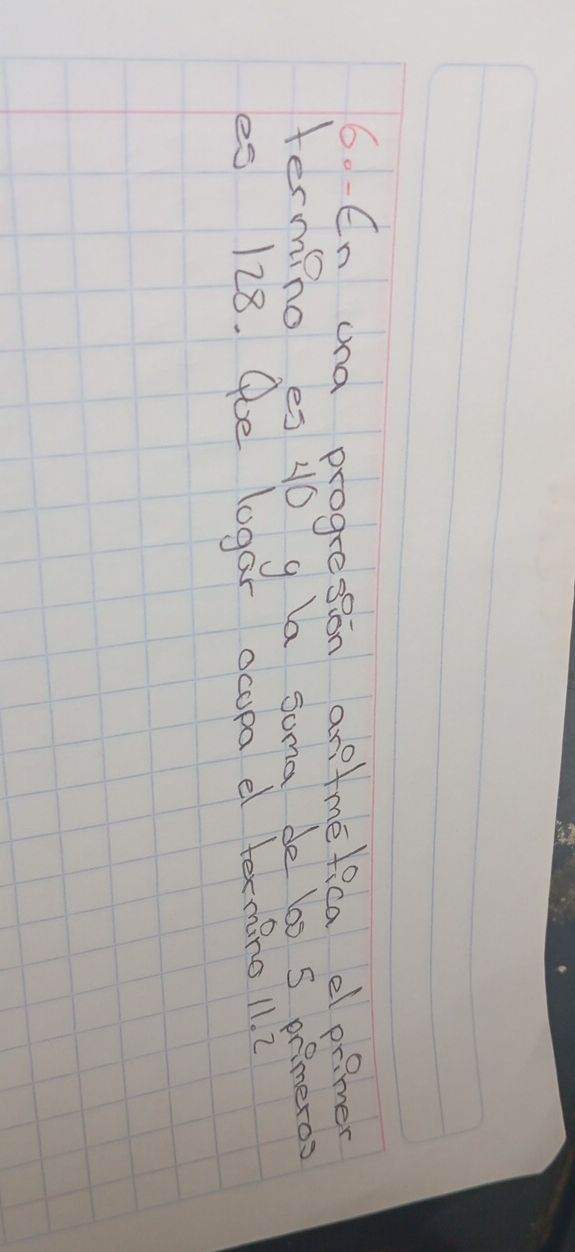 6.-En una progresión aritmética el primer
termino es 40 y la suma de los 5 primeros
es 128. Que lugar ocupa el termino 11.2